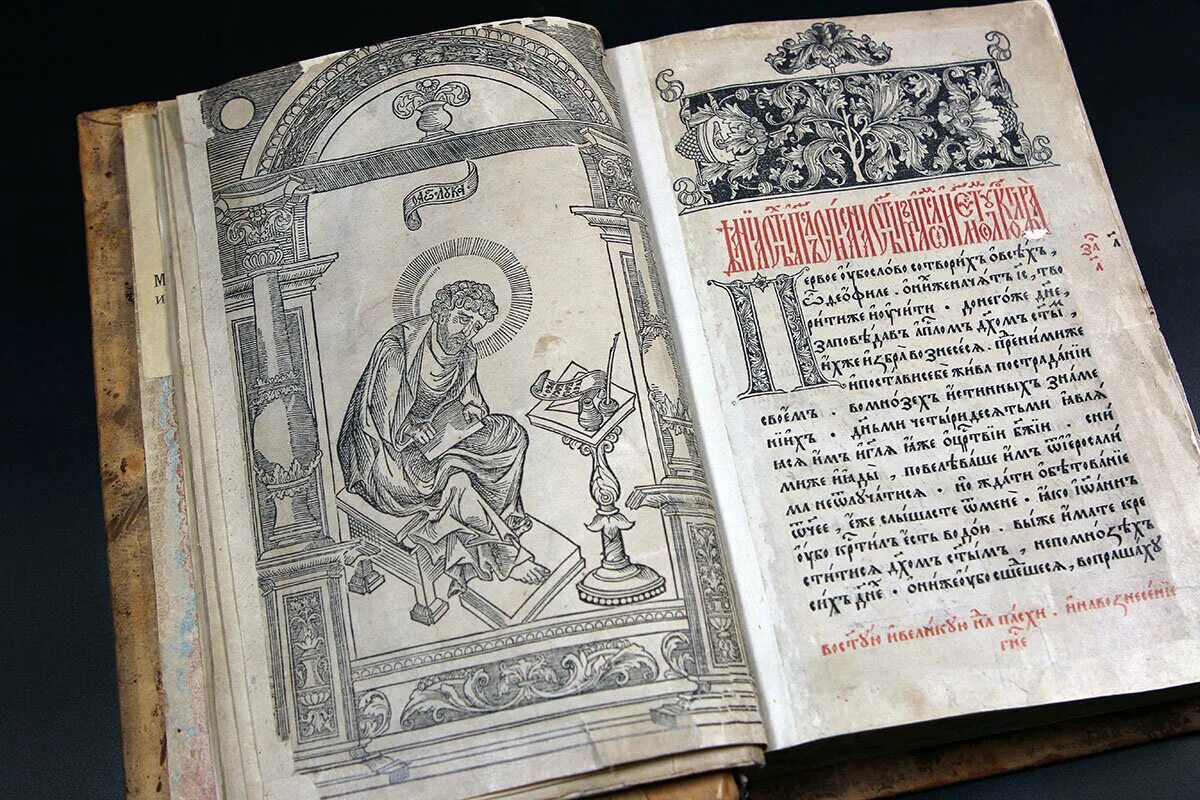 М
и
ЛУКА
за҃ а҃
Первое ѹбо слово сотворихъ ѡ всѣхъ,
ѽ деѡфиле · ѻ ниже начатъ і҃с, тво
рити же и ѹчити · до негоже дн҃е,
заповѣдавъ апⷭ҇ломъ дх҃омъ ст҃ы,
ихже избра вознесесѧ · пре ними же
и постави себе жива по страданїи
своемъ · во мнозехъ истинныхъ знаме
нїихъ · дн҃ьми четыридесѧтьми ꙗвлѧ
ꙗсѧ имъ, и гл҃ѧ ꙗже ѡ црⷭ҇твїи бж҃їи · с ни
ми же и ꙗды, повелѣваше имъ ѿ іеросали
ма не ѿлꙋчатисѧ · но ждати ѻбѣтованїе
ѿч҃ее, еже слышасте ѿ мене · ꙗко іѡаннъ
ѹбо крⷭ҇тилъ есть водою · вы же имате кре
ститисѧ дх҃омъ ст҃ымъ, не по мнозѣхъ
сихъ дн҃е · ѻни же ѹбо сшешесѧ, вопрашахꙋ
во ст҃ꙋю и великꙋю нлⷧ҇ пасхи · и на вознесенїе
гн҃е